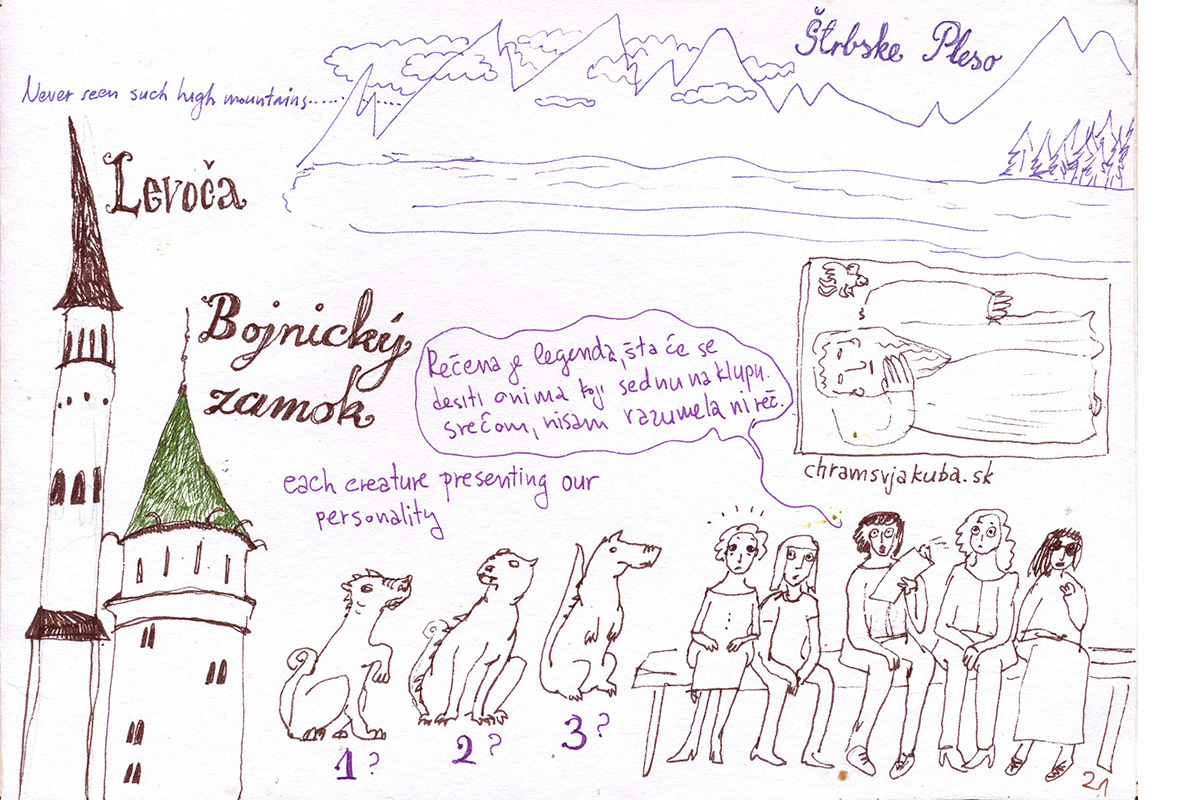 Štrbske Pleso
Never seen such high mountains.........
Levoča
Bojnický
zamok
Rečena je legenda, šta će se
desiti onima koji sednu na klupu.
srećom, nisam razumela ni reč.
chramsvjakuba.sk
each creature presenting our
personality
1?
2?
3?
21